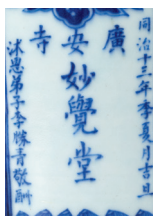 同治十三年季夏月吉旦
廣安寺
妙覺堂
沐恩弟子李勝育敬酬